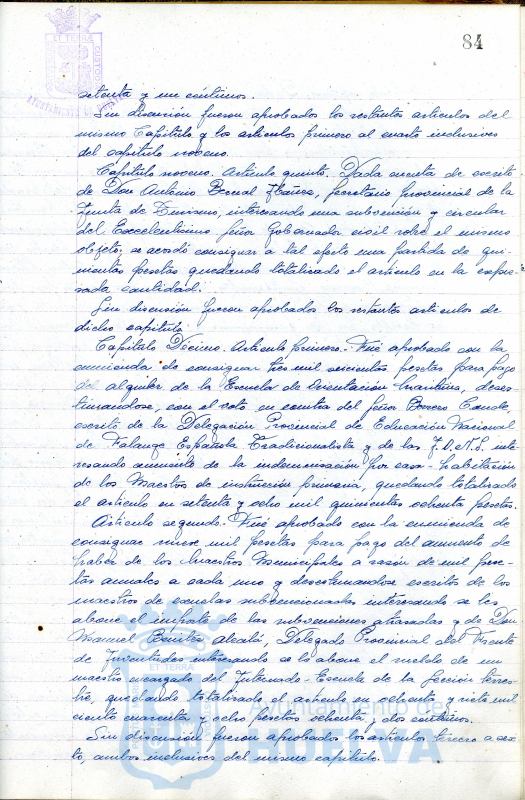 84
setenta y un céntimos.
Sin discusión fueron aprobados los restantes artículos del
mismo Capítulo y los artículos primero al cuarto inclusives
del capítulo noveno.
Capítulo noveno. Artículo quinto. Dada cuenta de escrito
de Don Antonio Bernal Ibáñez, Secretario Provincial de la
Junta de Turismo, interesando una subvención y circular
del Excelentísimo Señor Gobernador civil sobre el mismo
objeto; se acordó consignar a tal efecto una partida de qui-
nientas pesetas quedando totalizado el artículo en la expre-
sada cantidad.
Sin discusión fueron aprobados los restantes artículos de
dicho capítulo
Capítulo Décimo. Artículo primero.- Fué aprobado con la
enmienda de consignar tres mil seiscientas pesetas para pago
del alquiler de la Escuela de Orientación Marítima, deses-
timandose, con el voto en contra del Señor Borrero Conde,
escrito de la Delegación Provincial de Educación Nacional
de Falange Española Tradicionalista y de las J.O.N.S. inte-
resando aumento de la indemnización por casa-habitación
de los Maestros de instrucción primaria, quedando totalizado
el artículo en setenta y ocho mil quinientas ochenta pesetas.
Artículo segundo.- Fué aprobado con la enmienda de
consignar nueve mil pesetas para pago del aumento de
haber de los Maestros Municipales a razón de mil pese-
tas anuales a cada uno y desestimandose escritos de los
maestros de escuelas subvencionadas interesando se les
abone el importe de las subvenciones atrasadas y de Don
Manuel Benítez Alcalá, Delegado Provincial del Frente
de Juventudes interesando se le abone el sueldo de un
maestro encargado del Internado-Escuela de la Sección terres-
tre, quedando totalizado el artículo en ochenta y siete mil
ciento cuarenta y ocho pesetas ochenta y dos céntimos.
Sin discusión fueron aprobados los artículos tercero a sex-
to, ambos inclusives del mismo capítulo.
Ayuntamiento de
HUELVA